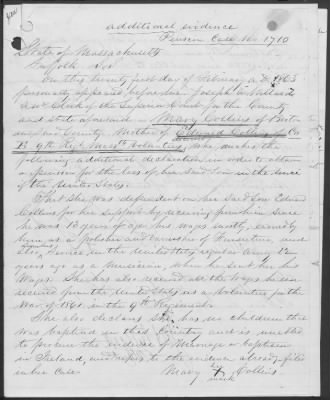 additional evidence
Pension Case No 1710
State of Massachusetts
Suffolk SS
On this twenty first day of February A D 1863
personally appeared before me Joseph A Willard
Clerk of the Superior Court for the County
and State aforesaid Mary Collins of Boston
County Mother of Edward Collins of Co
B 9th Regt Massts Volunteers, who makes the
following additional declaration in order to obtain
a pension for the loss of her said son in the service
of the United States.
That she was dependent on her said son Edward
Collins for her support by receiving from him since
he was 13 years of age his wages mostly, earned by
him as a polisher and varnisher of Furniture, and
also, served in the United States regular Army
years ago as a musician, and he sent her his
wages. She has also received all the wages he
received from the United States as a Volunteer in the
War of 1861 in the 9th Regiment.
She also declares she has no children that
was baptised in this Country and is unable
to procure the evidence of Marriage or baptism
in Ireland, and refers to the evidence already filed
in her Case.
Mary + Collins
mark